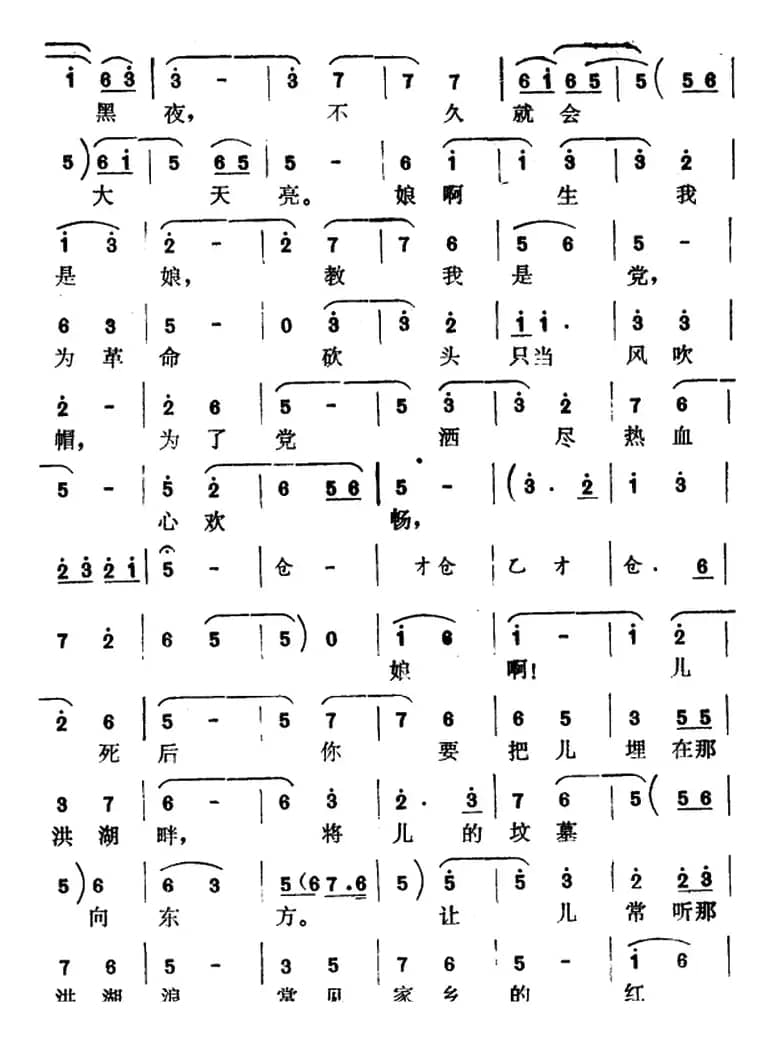 i 6 3 | 3 - | 3 7 | 7 7 | 6 i 6 5 | 5 ( 5 6 |
黑 夜， 不 久 就 会
5 ) 6 i | 5 6 5 | 5 - | 6 i | i 3 | 3 2 |
大 天 亮。 娘 啊 生 我
i 3 | 2 - | 2 7 | 7 6 | 5 6 | 5 - |
是 娘， 教 我 是 党，
6 3 | 5 - | 0 3 | 3 2 | i i . | 3 3 |
为 革 命 砍 头 只 当 风 吹
2 - | 2 6 | 5 - | 5 3 | 3 2 | 7 6 |
帽， 为 了 党 洒 尽 热 血
5 - | 5 2 | 6 5 6 | 5 - | ( 3 . 2 | i 3 |
心 欢 畅，
2 3 2 i | 5 - | 仓 - | 才 仓 | 乙 才 | 仓 . 6 |
7 2 | 6 5 | 5 ) 0 | i 6 | i - | i 2 |
娘 啊！ 儿
2 6 | 5 - | 5 7 | 7 6 | 6 5 | 3 5 5 |
死 后 你 要 把 儿 埋 在 那
3 7 | 6 - | 6 3 | 2 . 3 | 7 6 | 5 ( 5 6 |
洪 湖 畔， 将 儿 的 坟 墓
5 ) 6 | 6 3 | 5 ( 6 7 . 6 | 5 ) 5 | 5 3 | 2 2 3 |
向 东 方。 让 儿 常 听 那
7 6 | 5 - | 3 5 | 7 6 | 5 - | i 6 |
洪 湖 浪 常 见 家 乡 的 红